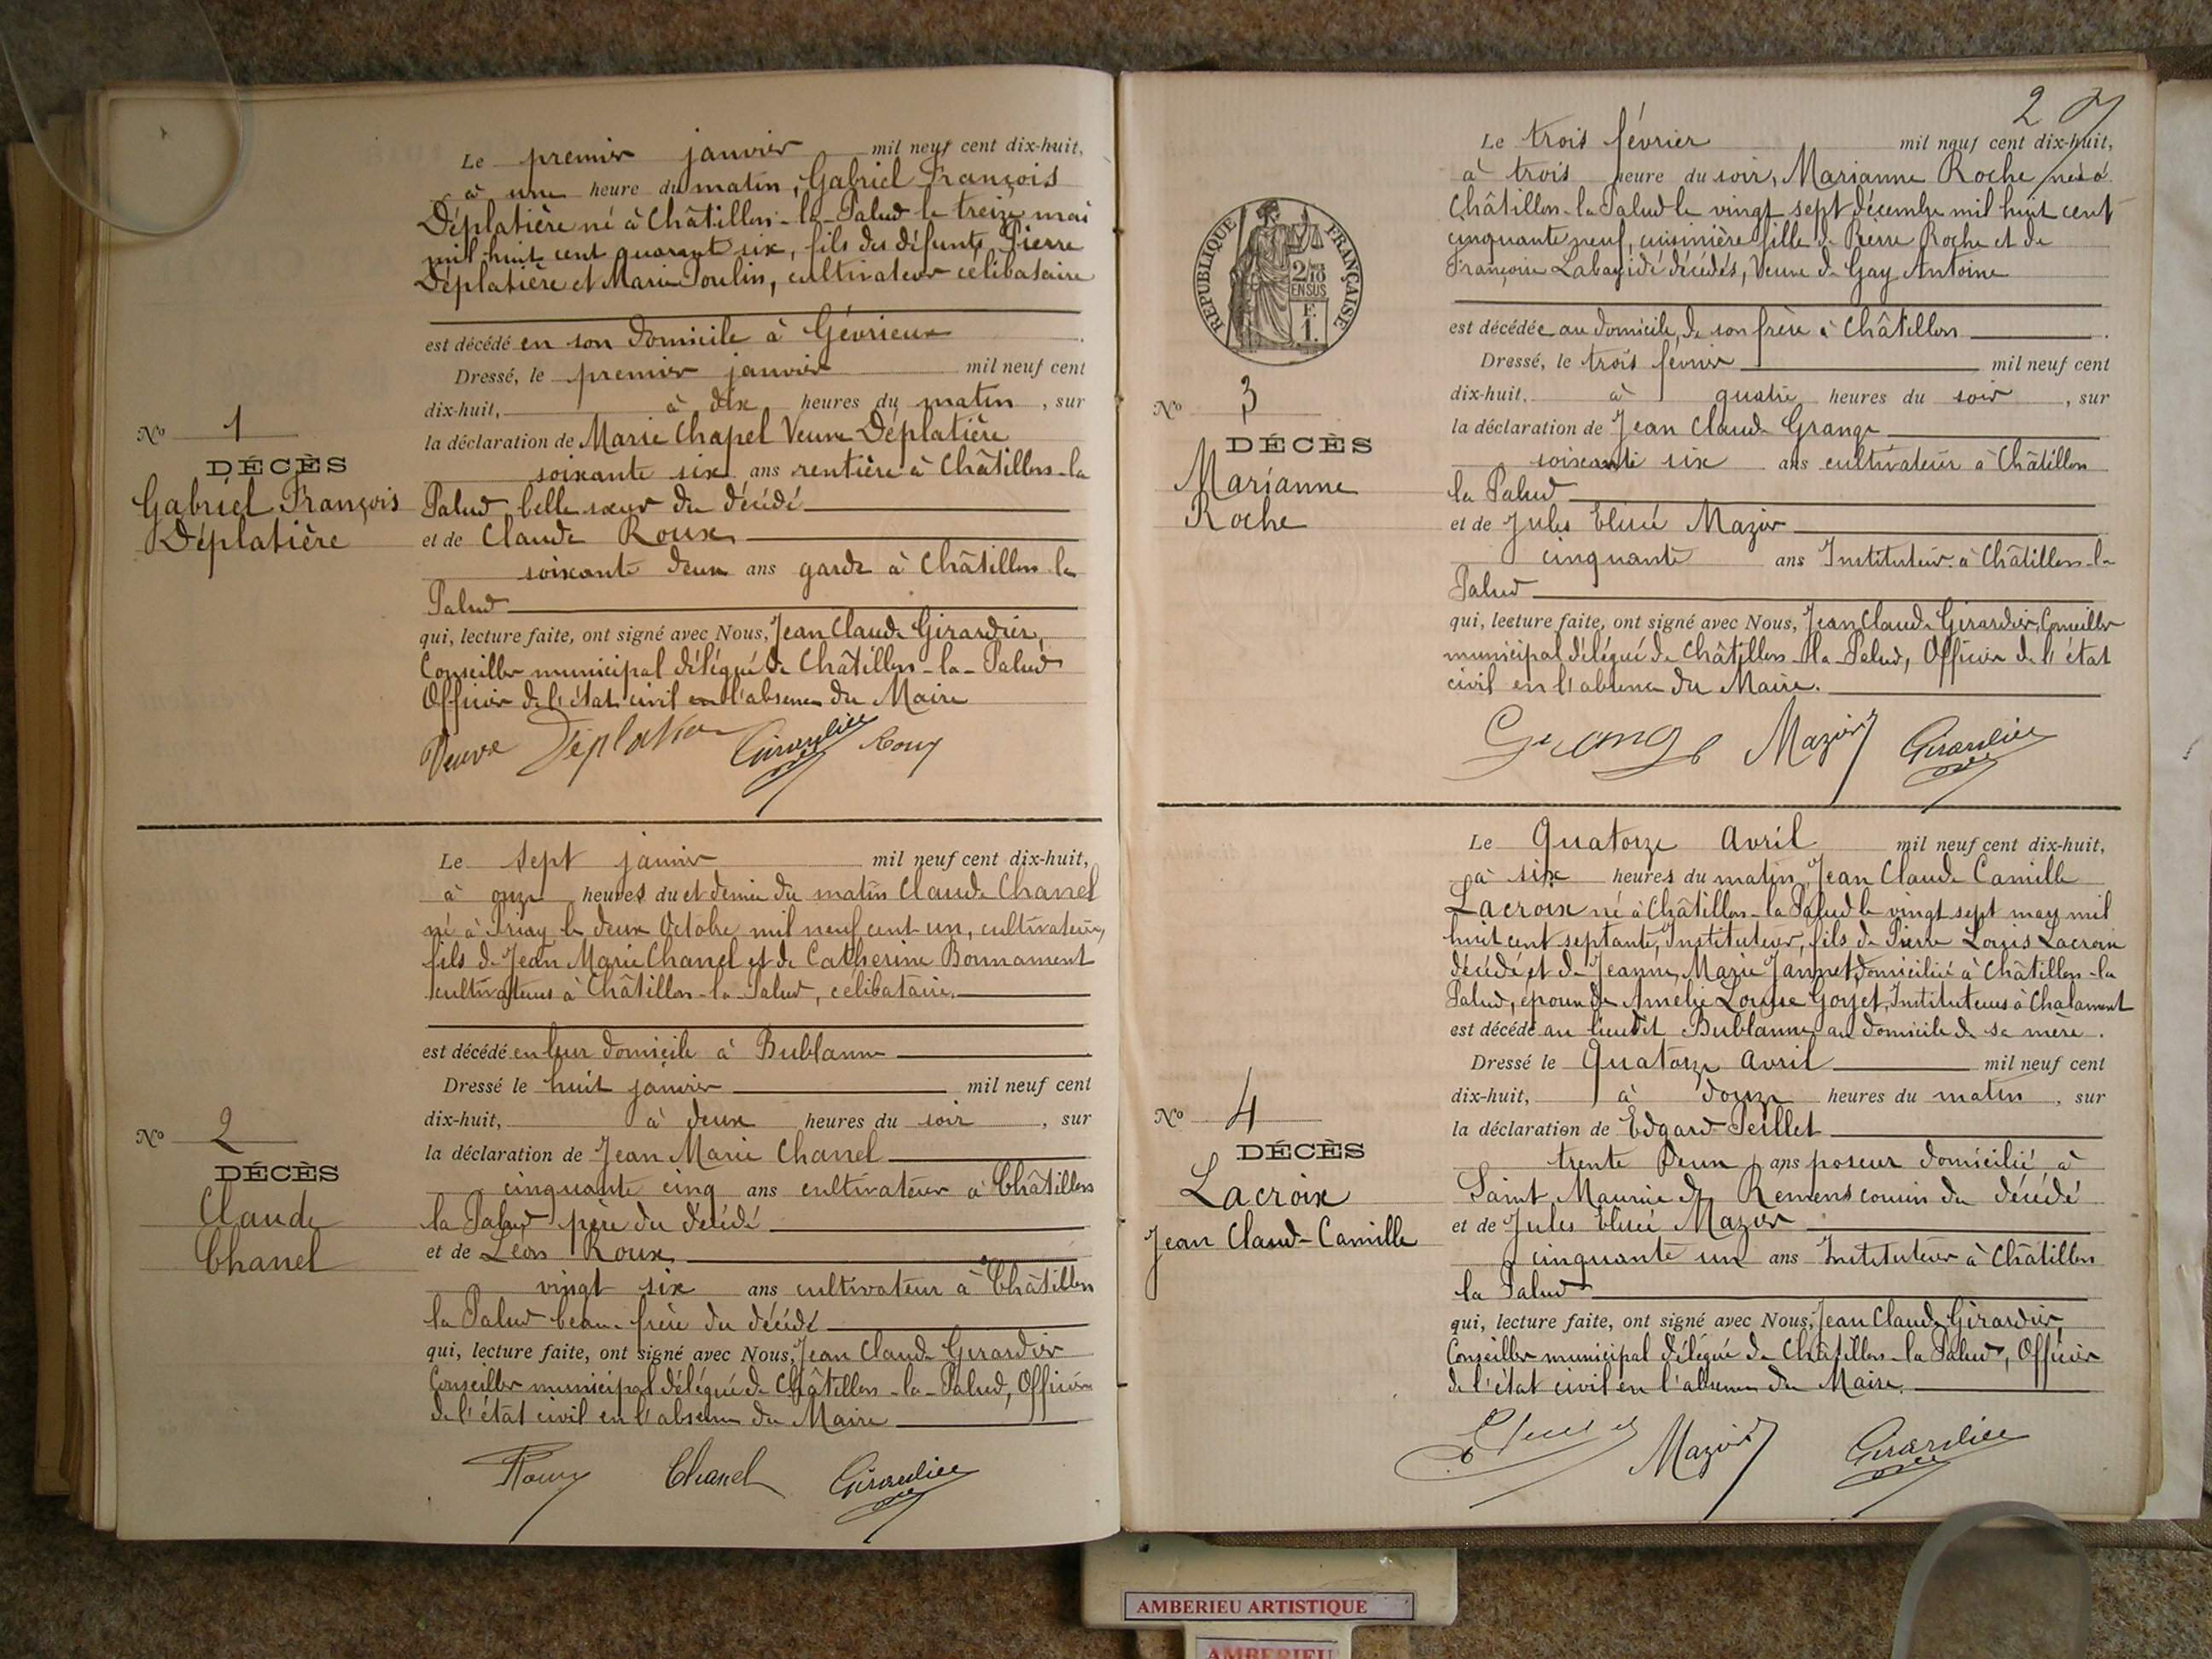 Le premier janvier mil neuf cent dix-huit,
à une heure du matin, Gabriel François
Déplatière né à Châtillon-la-Palud le treize mai
mil huit cent quarant six, fils des défunts, Pierre
Déplatière et Marie Poulin, cultivateur célibataire
est décédé en son domicile à Gévrieux
Dressé, le premier janvier mil neuf cent
dix-huit, à dix heures du matin, sur
la déclaration de Marie Chapel Veuve Déplatière
soixante six ans rentière à Châtillon-la
Palud belle sœur du décédé
et de Claude Roux
soixante deux ans garde à Châtillon la
Palud
qui, lecture faite, ont signé avec Nous, Jean Claude Girardier,
Conseiller municipal délégué de Châtillon-la-Palud
Officier de l'état civil en l'absence du Maire
Veuve Déplatière Girardier Roux
No 1
DÉCÈS
Gabriel François
Déplatière
Le sept janvier mil neuf cent dix-huit,
à onze heures du et demie du matin Claude Chanel
né à Priay le deux Octobre mil neuf cent un, cultivateur,
fils de Jean Marie Chanel et de Catherine Bonnament
cultivateurs à Châtillon-la-Palud, célibataire.
est décédé en leur domicile à Bublanne
Dressé le huit janvier mil neuf cent
dix-huit, à deux heures du soir, sur
la déclaration de Jean Marie Chanel
cinquante cinq ans cultivateur à Châtillon
la Palud père du décédé
et de Léon Roux
vingt six ans cultivateur à Châtillon
la Palud beau-frère du décédé
qui, lecture faite, ont signé avec Nous, Jean Claude Girardier
Conseiller municipal délégué de Châtillon-la-Palud, Officier
de l'état civil en l'absence du Maire
Roux Chanel Girardier
No 2
DÉCÈS
Claude
Chanel
2
Le trois février mil neuf cent dix-huit,
à trois heure du soir, Marianne Roche née à
Châtillon-la-Palud le vingt sept décembre mil huit cent
cinquante neuf, cuisinière fille de Pierre Roche et de
Françoise décédés, Veuve de Gay Antoine
est décédée au domicile de son frère à Châtillon
Dressé, le trois février mil neuf cent
dix-huit, à quatre heures du soir, sur
la déclaration de Jean Claude Grange
soixante six ans cultivateur à Châtillon
la Palud
et de Jules Elisée Mazuir
cinquante ans Instituteur à Châtillon-la
Palud
qui, lecture faite, ont signé avec Nous, Jean Claude Girardier, Conseiller
municipal délégué de Châtillon-la-Palud, Officier de l'état
civil en l'absence du Maire.
Grange Mazuir Girardier
RÉPUBLIQUE FRANÇAISE
2/10 EN SUS
F. 1.
No 3
DÉCÈS
Marianne
Roche
Le Quatorze Avril mil neuf cent dix-huit,
à six heures du matin, Jean Claude Camille
Lacroix né à Châtillon-la-Palud le vingt sept mars mil
huit cent septante, Instituteur, fils de Pierre Louis Lacroix
décédé et de Jeanne Marie Jannet domiciliée à Châtillon-la
Palud, époux de Amélie Louise Goyet, Instituteurs à Chalamont
est décédé au lieudit Bublanne au domicile de sa mère.
Dressé le Quatorze Avril mil neuf cent
dix-huit, à douze heures du matin, sur
la déclaration de Edgard Peillet
trente deux ans poseur domicilié à
Saint Maurice de Remens cousin du décédé
et de Jules Elisée Mazuir
cinquante un ans Instituteur à Châtillon
la Palud
qui, lecture faite, ont signé avec Nous, Jean Claude Girardier,
Conseiller municipal délégué de Châtillon-la Palud, Officier
de l'état civil en l'absence du Maire.
Mazuir Girardier
No 4
DÉCÈS
Lacroix
Jean Claude-Camille
AMBERIEU ARTISTIQUE
AMBERIEU